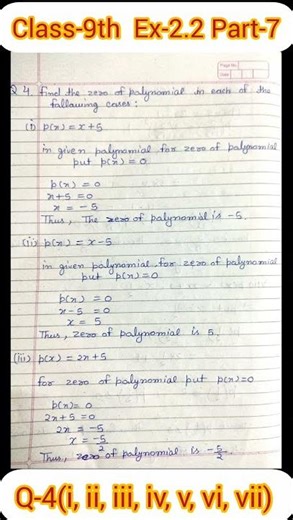 Class-9th Ex-2.2 Part-7
Page No.
Date
Q 4. find the zero of polynomial in each of the
following cases :
(i) p(x) = x+5
in given polynomial for zero of polynomial
put p(x) = 0
p(x) = 0
x+5 = 0
x = -5
Thus, The zero of polynomial is -5.
(ii) p(x) = x-5
in given polynomial, for zero of polynomial
put p(x) = 0
p(x) = 0
x-5 = 0
x = 5
Thus, zero of polynomial is 5.
(iii) p(x) = 2x+5
for zero of polynomial put p(x)=0
p(x) = 0
2x+5 = 0
2x = -5
x = -5/2
Thus, zero of polynomial is -5/2.
Q-4(i, ii, iii, iv, v, vi, vii)